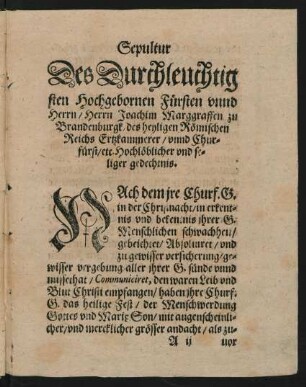 Sepultur
Des Durchleuchtig
sten Hochgebornen Fürsten vnnd
Herrn / Herrn Joachim Marggraffen zu
Brandenburgk / des heyligen Römischen
Reichs Ertzkammerer / vnnd Chur-
fürst / etc. Hochlöblicher vnd se-
liger gedechtnis.
NAch dem jre Churf. G.
in der Christnacht / in erkent-
nis vnd bekentnis jhrer G.
Menschlichen schwachheit /
gebeichtet / Absoluiret / vnd
zu gewisser versicherung / ge-
wisser vergebung aller jhrer G. sünde vnnd
missethat / Communiciret, den waren Leib vnd
Blut Christi empfangen / haben jhre Churf.
G. das heilige Fest / der Menschwerdung
Gottes vnd Mariæ Son / mit augenscheinli-
cher / vnd mercklicher grösser andacht / als zu-
A ij uor